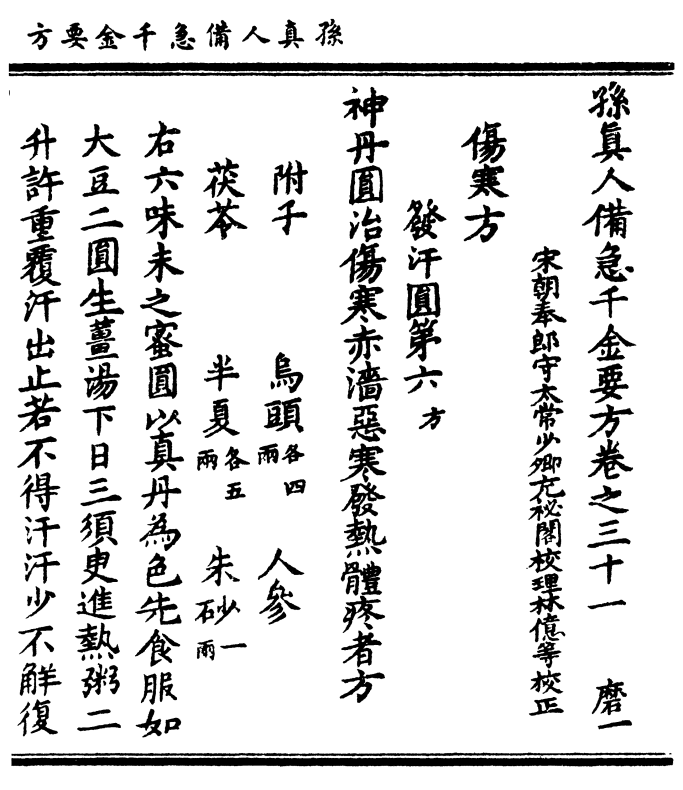 孫真人備急千金要方
孫真人備急千金要方卷之三十一 磨一
宋朝奉郎守太常少卿充祕閣校理林億等校正
傷寒方
發汗圓第六 方
神丹圓治傷寒赤濇惡寒發熱體疼者方
附子 烏頭 各四兩 人參
茯苓 半夏 各五兩 朱砂 一兩
右六味末之蜜圓以真丹為色先食服如
大豆二圓生薑湯下日三須臾進熱粥二
升許重覆汗出止若不得汗汗少不解復